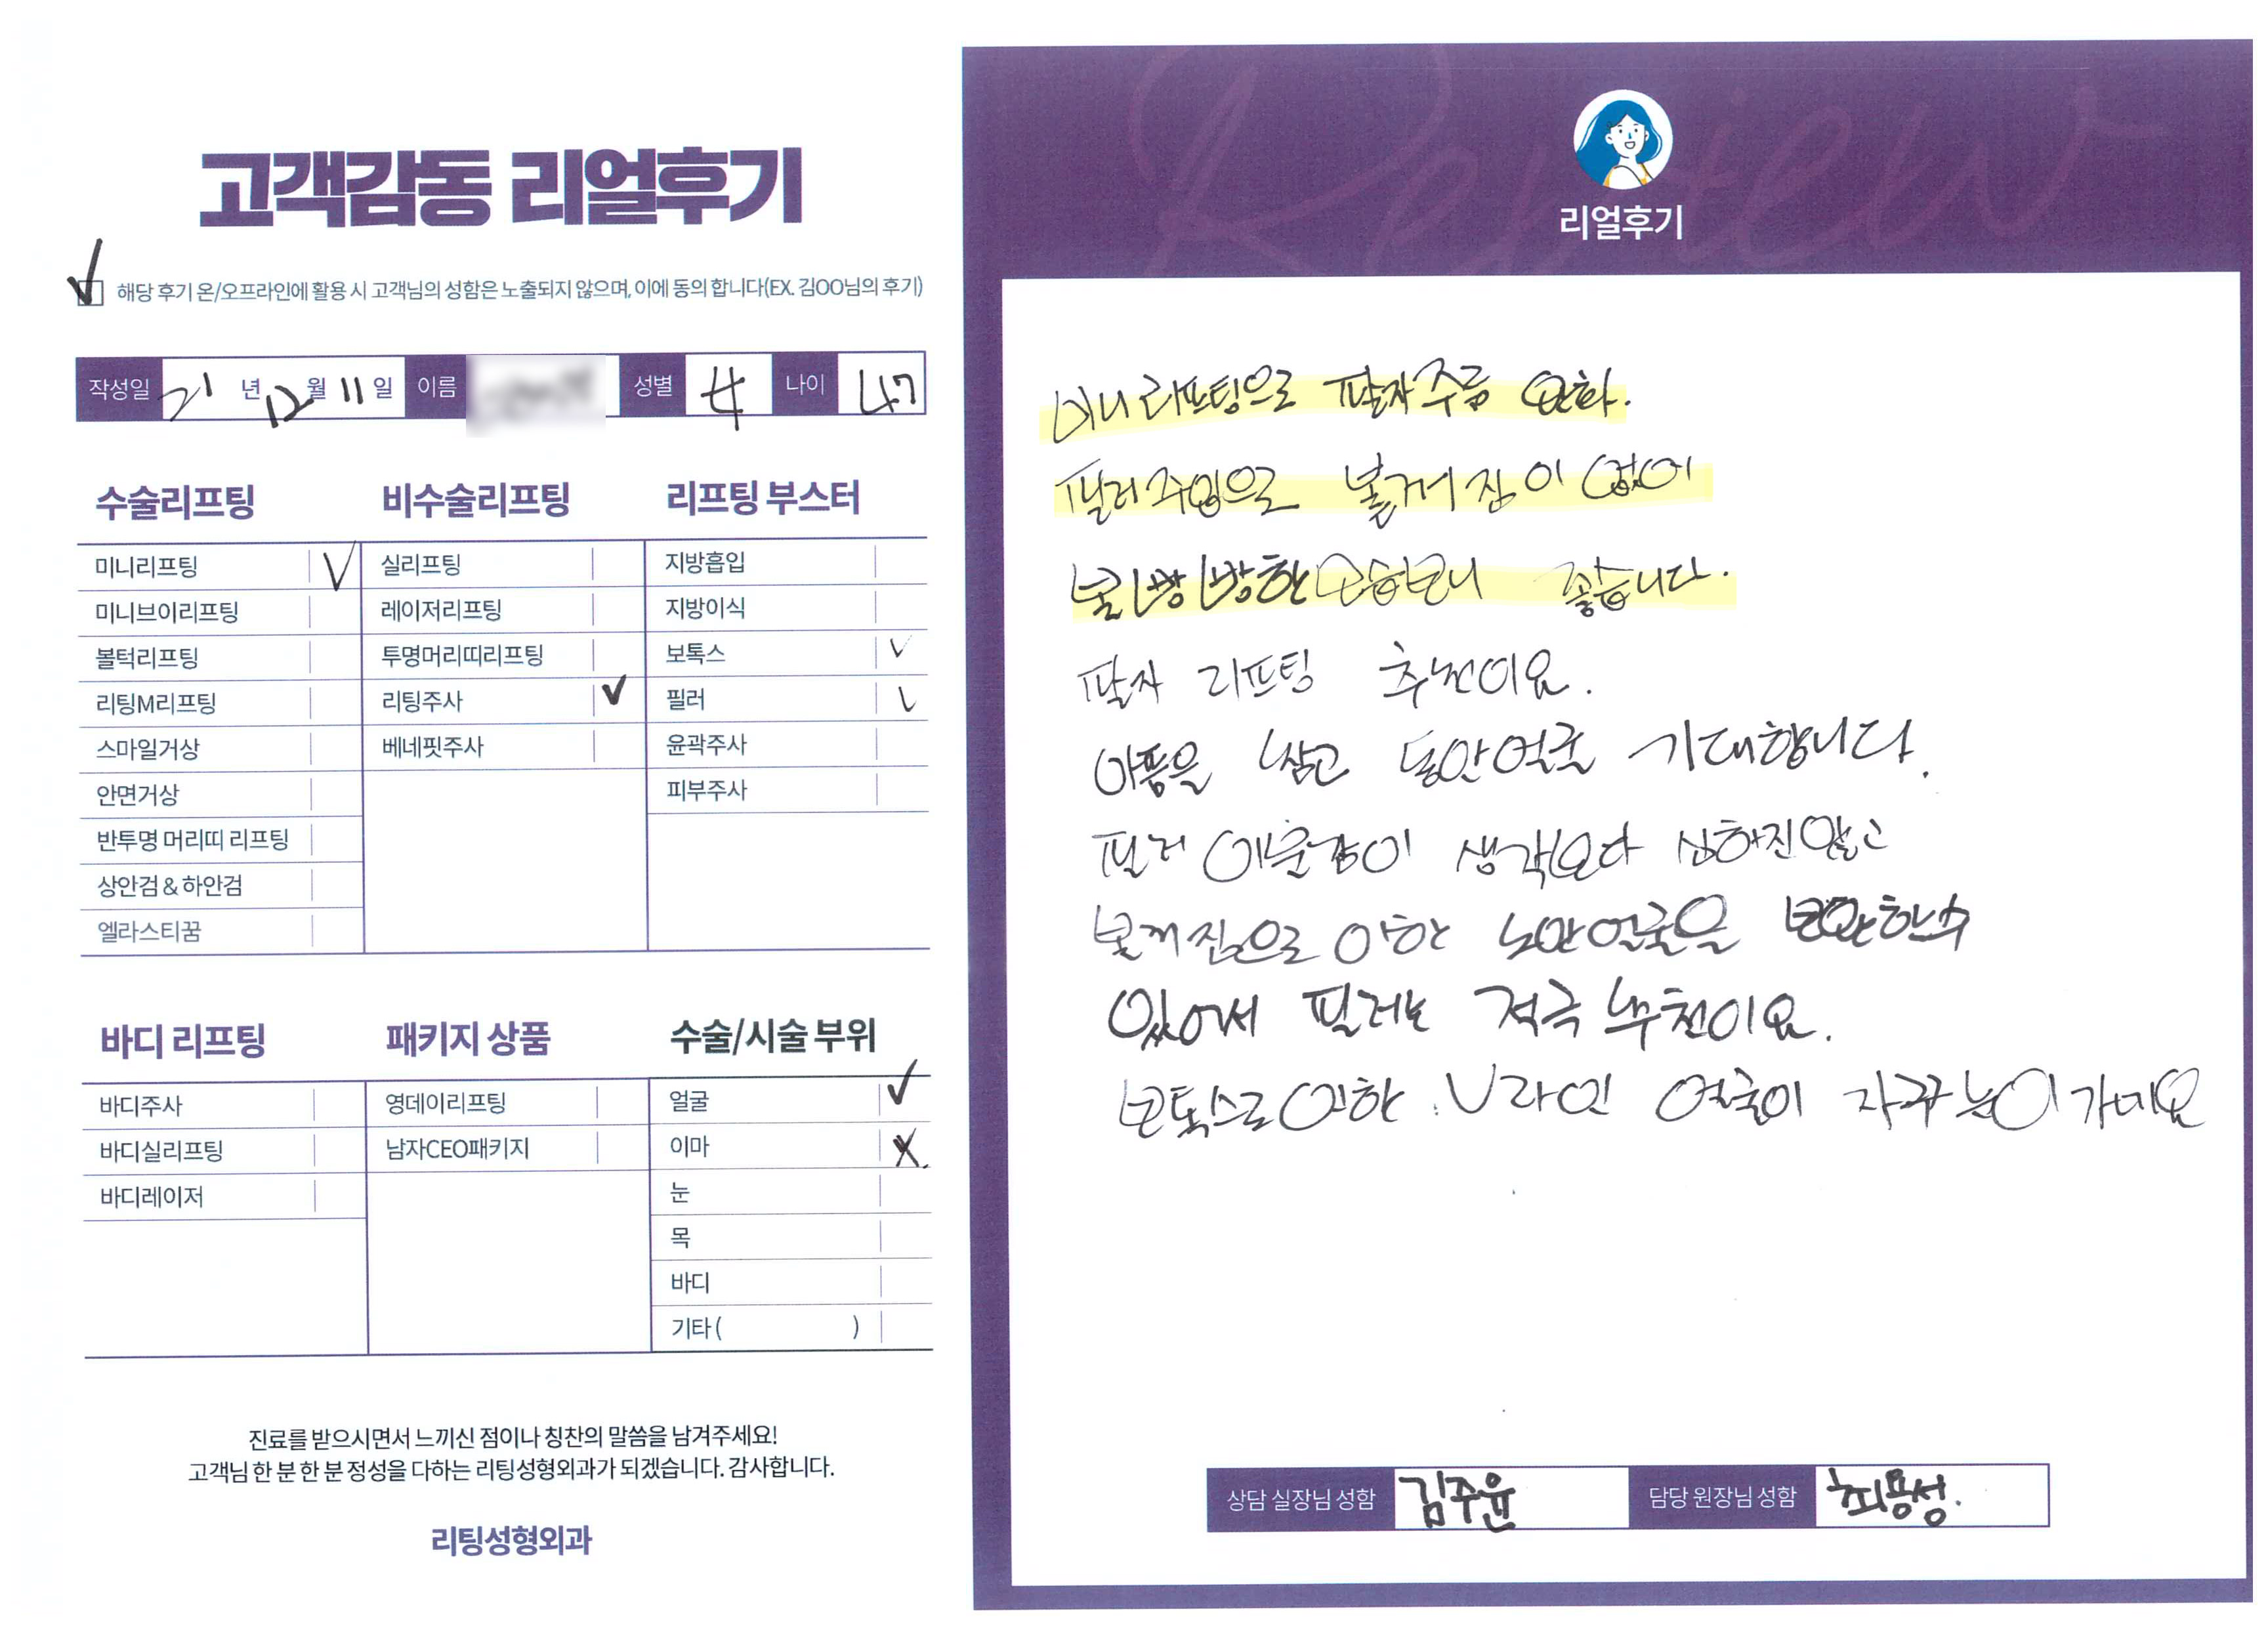 고객감동 리얼후기
해당 후기 온/오프라인에 활용 시 고객님의 성함은 노출되지 않으며, 이에 동의 합니다(EX. 김OO님의 후기)
작성일 21 년 12 월 11 일 이름 성별 女 나이 47
수술리프팅
미니리프팅 V
미니브이리프팅
볼턱리프팅
리팅M리프팅
스마일거상
안면거상
반투명 머리띠 리프팅
상안검 & 하안검
엘라스티꿈
비수술리프팅
실리프팅
레이저리프팅
투명머리띠리프팅
리팅주사 ✓
베네핏주사
리프팅 부스터
지방흡입
지방이식
보톡스 ✓
필러 ✓
윤곽주사
피부주사
바디 리프팅
바디주사
바디실리프팅
바디레이저
패키지 상품
영데이리프팅
남자CEO패키지
수술/시술 부위
얼굴 ✓
이마 X
눈
목
바디
기타 ( )
진료를 받으시면서 느끼신 점이나 칭찬의 말씀을 남겨주세요!
고객님 한 분 한 분 정성을 다하는 리팅성형외과가 되겠습니다. 감사합니다.
리팅성형외과
Review
리얼후기
미니리프팅으로 팔자주름 완화.
필러주입으로 볼꺼짐이 없이
볼빵빵한 모습보니 좋습니다.
팔자 리프팅 추천이요.
아픔을 참고 동안얼굴 기대합니다.
필러 이물감이 생각보다 심하진않고
볼꺼짐으로 인한 노안얼굴을 보완할수
있어서 필러는 적극 추천이요.
보톡스로 인한 V라인 얼굴이 자꾸 눈이가네요
상담 실장님 성함 김주윤 담당 원장님 성함 최용성.